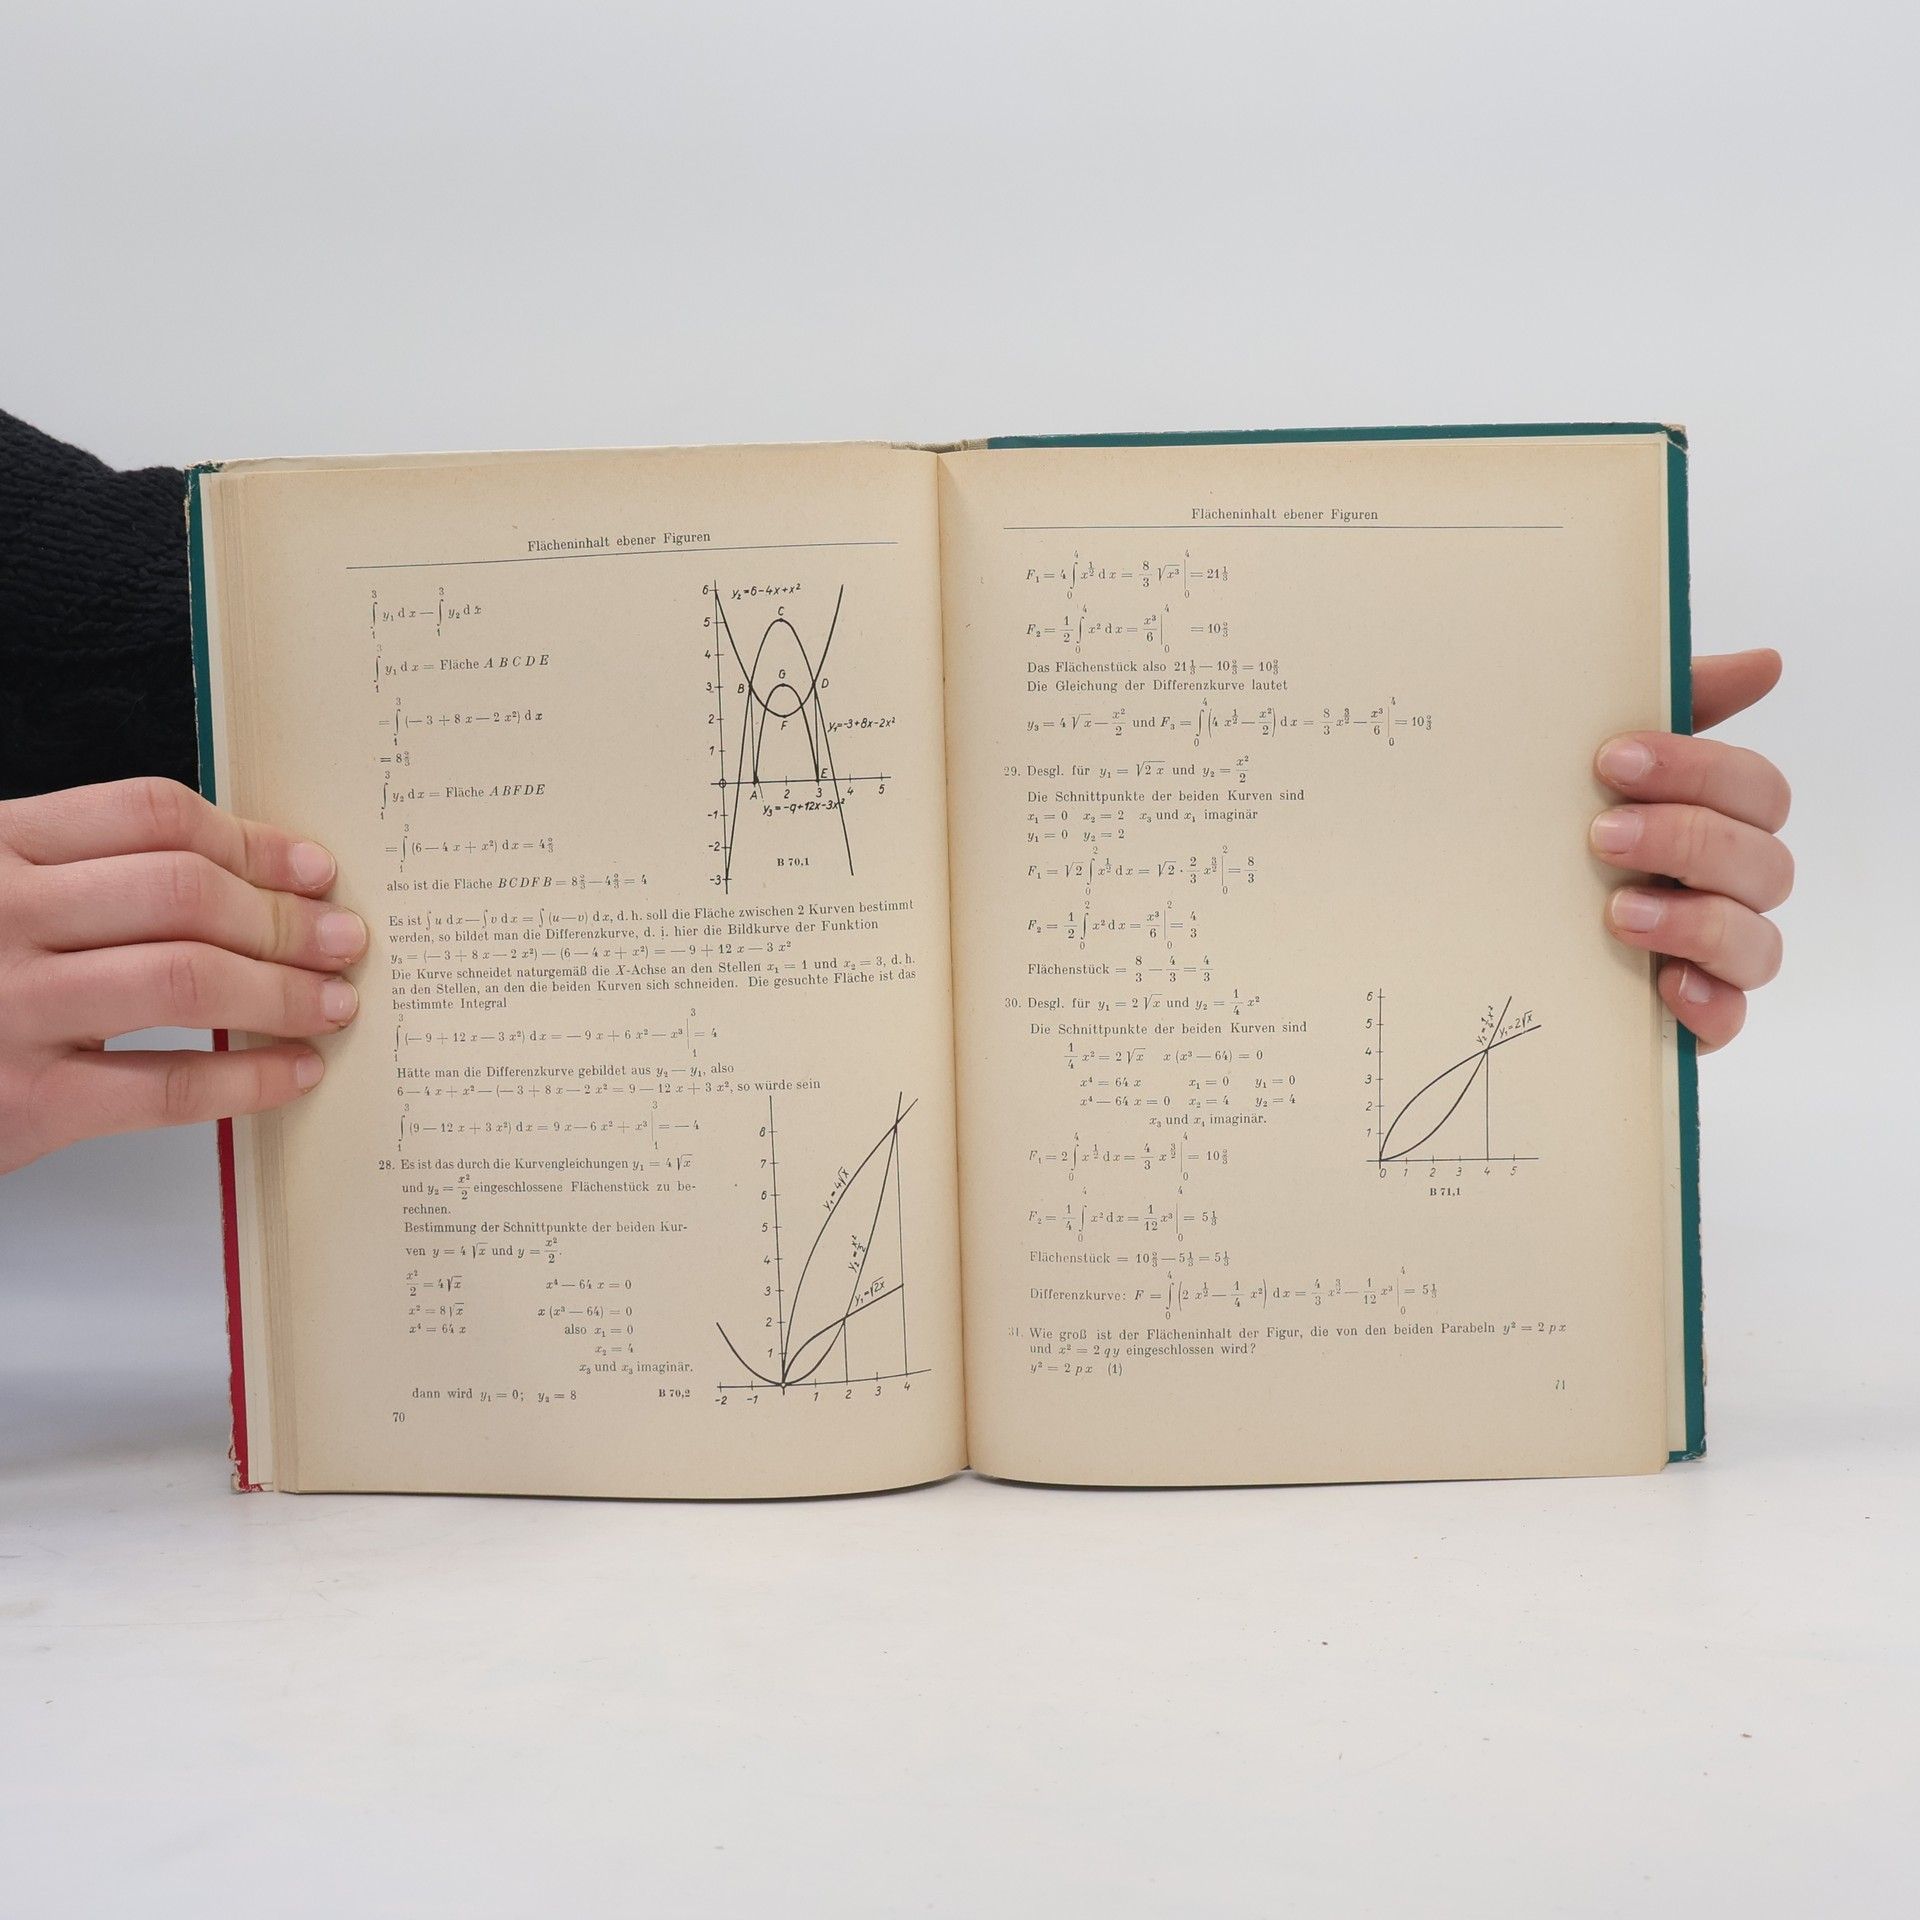 Flächeninhalt ebener Figuren
∫₁³ y₁ dx — ∫₁³ y₂ dx
∫₁³ y₁ dx = Fläche A B C D E
= ∫₁³ (— 3 + 8 x — 2 x²) dx
= 8⅔
∫₁³ y₂ dx = Fläche A B F D E
= ∫₁³ (6 — 4 x + x²) dx = 4⅔
also ist die Fläche B C D F B = 8⅔ — 4⅔ = 4
y₂=6-4x+x²
6
5
4
3
2
1
-1
-2
-3
C
G
B
D
F
A
E
2 3 4 5
y₁=-3+8x-2x²
y₃=-9+12x-3x²
B 70,1
Es ist ∫ u dx — ∫ v dx = ∫ (u — v) dx, d. h. soll die Fläche zwischen 2 Kurven bestimmt
werden, so bildet man die Differenzkurve, d. i. hier die Bildkurve der Funktion
y₃ = (— 3 + 8 x — 2 x²) — (6 — 4 x + x²) = — 9 + 12 x — 3 x²
Die Kurve schneidet naturgemäß die X-Achse an den Stellen x₁ = 1 und x₂ = 3, d. h.
an den Stellen, an den die beiden Kurven sich schneiden. Die gesuchte Fläche ist das
bestimmte Integral
∫₁³ (— 9 + 12 x — 3 x²) dx = — 9 x + 6 x² — x³ |₁³ = 4
Hätte man die Differenzkurve gebildet aus y₂ — y₁, also
6 — 4 x + x² — (— 3 + 8 x — 2 x² = 9 — 12 x + 3 x², so würde sein
∫₁³ (9 — 12 x + 3 x²) dx = 9 x — 6 x² + x³ |₁³ = — 4
28. Es ist das durch die Kurvengleichungen y₁ = 4 √x
und y₂ = x²/2 eingeschlossene Flächenstück zu be-
rechnen.
Bestimmung der Schnittpunkte der beiden Kur-
ven y = 4 √x und y = x²/2.
x²/2 = 4 √x x⁴ — 64 x = 0
x² = 8 √x x (x³ — 64) = 0
x⁴ = 64 x also x₁ = 0
x₂ = 4
x₃ und x₃ imaginär.
dann wird y₁ = 0; y₂ = 8 B 70,2
8
7
6
5
4
3
2
1
y₁=4√x
y₂=x²/2
y₁=√2x
-2 -1 1 2 3 4
70
Flächeninhalt ebener Figuren
F₁ = 4 ∫₀⁴ x^½ dx = 8/3 √x³ |₀⁴ = 21⅓
F₂ = 1/2 ∫₀⁴ x² dx = x³/6 |₀⁴ = 10⅔
Das Flächenstück also 21⅓ — 10⅔ = 10⅔
Die Gleichung der Differenzkurve lautet
y₃ = 4 √x — x²/2 und F₃ = ∫₀⁴ (4 x^½ — x²/2) dx = 8/3 x^(3/2) — x³/6 |₀⁴ = 10⅔
29. Desgl. für y₁ = √2 x und y₂ = x²/2
Die Schnittpunkte der beiden Kurven sind
x₁ = 0 x₂ = 2 x₃ und x₄ imaginär
y₁ = 0 y₂ = 2
F₁ = √2 ∫₀² x^½ dx = √2 · 2/3 x^(3/2) |₀² = 8/3
F₂ = 1/2 ∫₀² x² dx = x³/6 |₀² = 4/3
Flächenstück = 8/3 — 4/3 = 4/3
30. Desgl. für y₁ = 2 √x und y₂ = 1/4 x²
Die Schnittpunkte der beiden Kurven sind
1/4 x² = 2 √x x (x³ — 64) = 0
x⁴ = 64 x x₁ = 0 y₁ = 0
x⁴ — 64 x = 0 x₂ = 4 y₂ = 4
x₃ und x₄ imaginär.
6
5
4
3
2
1
y₂=¼x²
y₁=2√x
0 1 2 3 4 5
B 71,1
F₁ = 2 ∫₀⁴ x^½ dx = 4/3 x^(3/2) |₀⁴ = 10⅔
F₂ = 1/4 ∫₀⁴ x² dx = 1/12 x³ |₀⁴ = 5⅓
Flächenstück = 10⅔ — 5⅓ = 5⅓
Differenzkurve: F = ∫₀⁴ (2 x^½ — 1/4 x²) dx = 4/3 x^(3/2) — 1/12 x³ |₀⁴ = 5⅓
31. Wie groß ist der Flächeninhalt der Figur, die von den beiden Parabeln y² = 2 p x
und x² = 2 q y eingeschlossen wird?
y² = 2 p x (1)
71